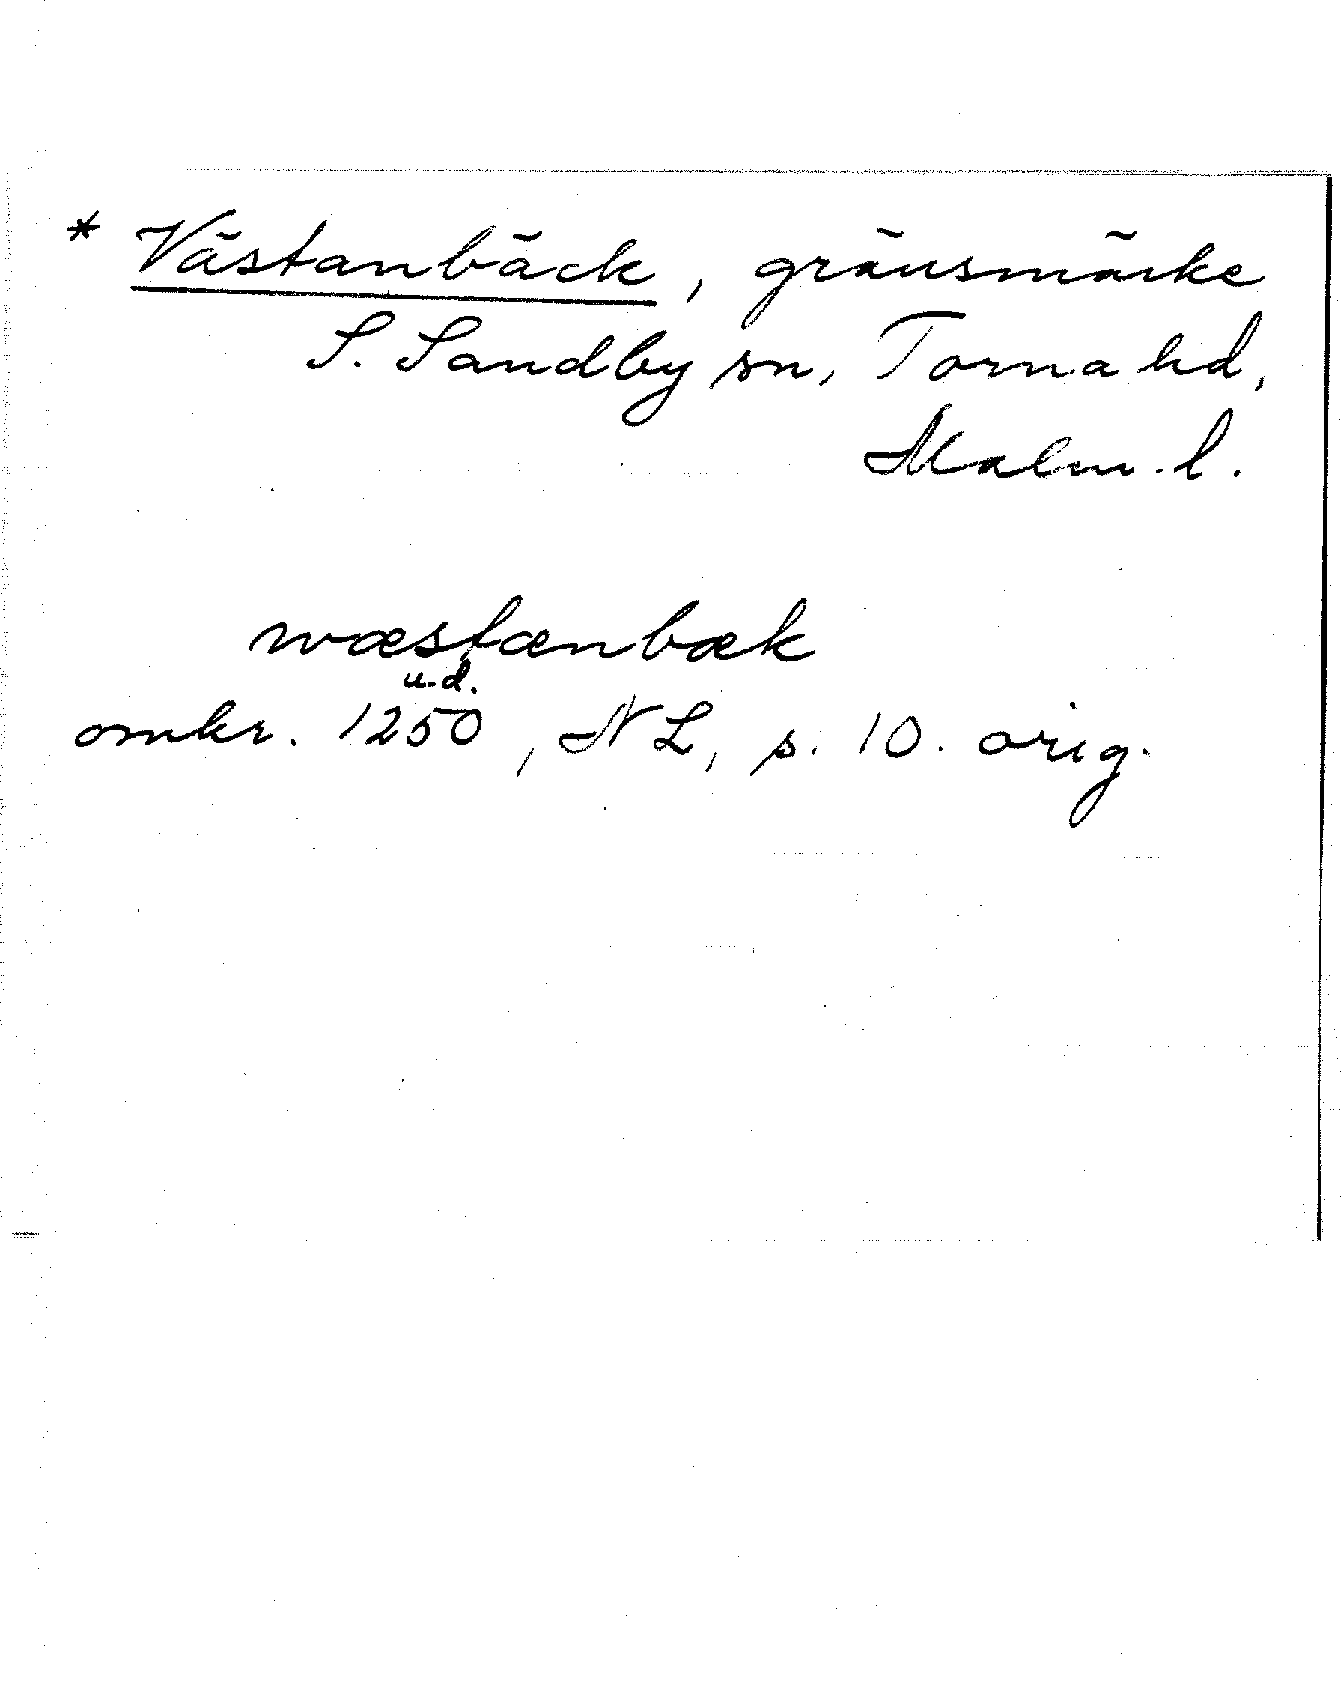 * Västanbäck, gränsmärke
S. Sandby sn, Torna hd,
Malm. l.
wæstænbæk
u.d.
omkr. 1250, NL, s. 10. orig.